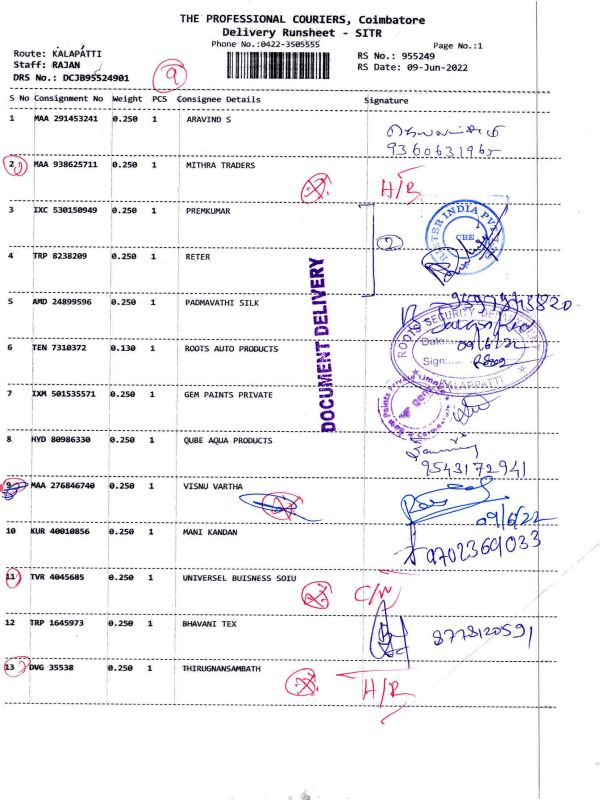 THE PROFESSIONAL COURIERS, Coimbatore
Delivery Runsheet - SITR
Phone No.:0422-3505555
Page No.:1
Route: KALAPATTI
Staff: RAJAN
DRS No.: DCJB95524901
RS No.: 955249
RS Date: 09-Jun-2022
9
S No Consignment No Weight PCS Consignee Details Signature
1 MAA 291453241 0.250 1 ARAVIND S
2 MAA 938625711 0.250 1 MITHRA TRADERS
3 IXC 530150949 0.250 1 PREMKUMAR
CBE
4 TRP 8238209 0.250 1 RETER
DOCUMENT DELIVERY
5 AMD 24899596 0.250 1 PADMAVATHI SILK
ROOTS SECURITY DEPARTMENT
Date: 09/6/22
6 TEN 7310372 0.130 1 ROOTS AUTO PRODUCTS
Sign:
KALAPPATTI
7 IXM 501535571 0.250 1 GEM PAINTS PRIVATE
8 HYD 80986330 0.250 1 QUBE AQUA PRODUCTS
9543172941
9 MAA 276846740 0.250 1 VISNU VARTHA
09/6/22
10 KUR 40010856 0.250 1 MANI KANDAN
9702369033
11 TVR 4045685 0.250 1 UNIVERSEL BUISNESS SOIU
12 TRP 1645973 0.250 1 BHAVANI TEX 8778120591
13 DVG 35538 0.250 1 THIRUGNANSAMBATH